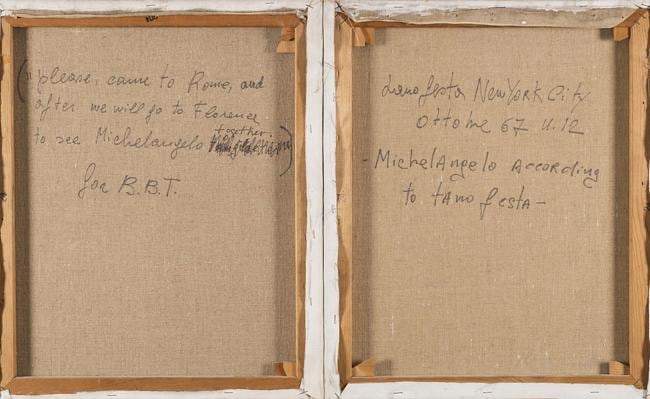 ("please, came to Rome, and
after we will go to Florence
to see Michelangelo together.)
for B.B.T.
tano festa New York City
Ottobre 67 n.12
- MichelAngelo ACCORDing
to tAno festA -